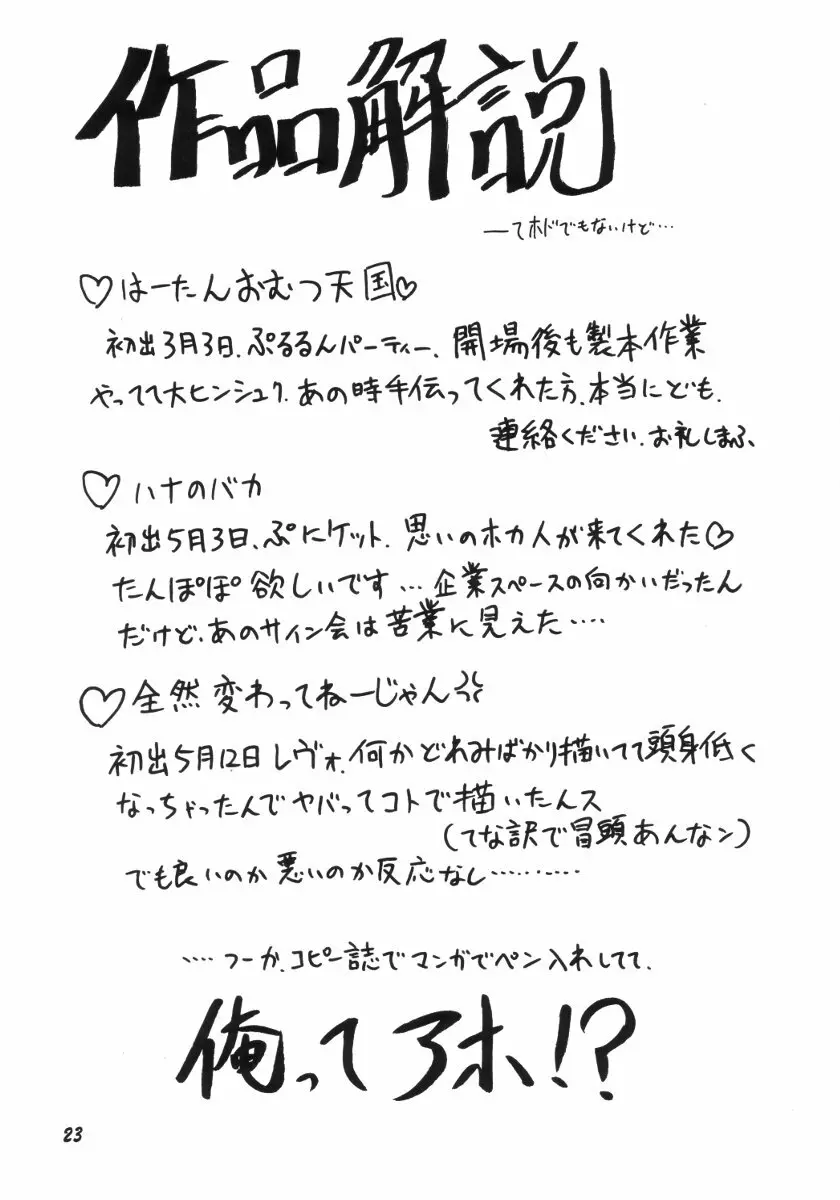 作品解説
―てホドでもないけど…
♡はーたんおむつ天国♡
初出3月3日、ぷるるんパーティー、開場後も製本作業
やってて大ヒンシュク。あの時手伝ってくれた方、本当にども。
連絡ください。お礼しまふ、
♡ハナのバカ
初出5月3日、ぷにケット、思いのホカ人が来てくれた♡
たんぽぽ欲しいです…企業スペースの向かいだったん
だけど、あのサイン会は苦業に見えた‥‥
♡全然変わってねーじゃん
初出5月12日レヴォ、何かどれみばかり描いてて頭身低く
なっちゃったんでヤバってコトで描いたんス
(てな訳で冒頭あんなン)
でも良いのか悪いのか反応なし………
‥‥つーか、コピー誌でマンガでペン入れしてて、
俺ってアホ!?
23